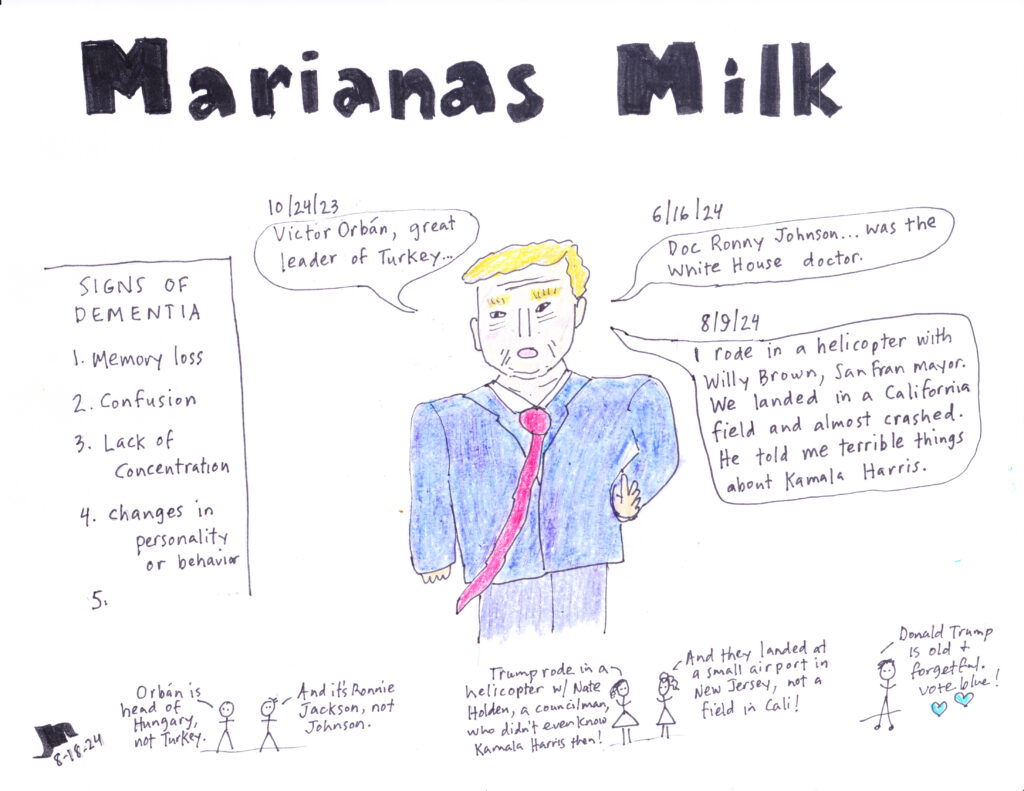 Marianas Milk
10/24/23
Victor Orbán, great
leader of Turkey...
6/16/24
Doc Ronny Johnson... was the
White House doctor.
8/9/24
I rode in a helicopter with
Willy Brown, San Fran mayor.
We landed in a California
field and almost crashed.
He told me terrible things
about Kamala Harris.
SIGNS OF
DEMENTIA
1. Memory loss
2. Confusion
3. Lack of
Concentration
4. Changes in
personality
or behavior
5.
Orbán is
head of
Hungary,
not Turkey.
And it's Ronnie
Jackson, not
Johnson.
Trump rode in a
helicopter w/ Nate
Holden, a councilman,
who didn't even know
Kamala Harris then!
And they landed at
a small airport in
New Jersey, not a
field in Cali!
Donald Trump
is old +
forgetful.
Vote blue!
8-18-24